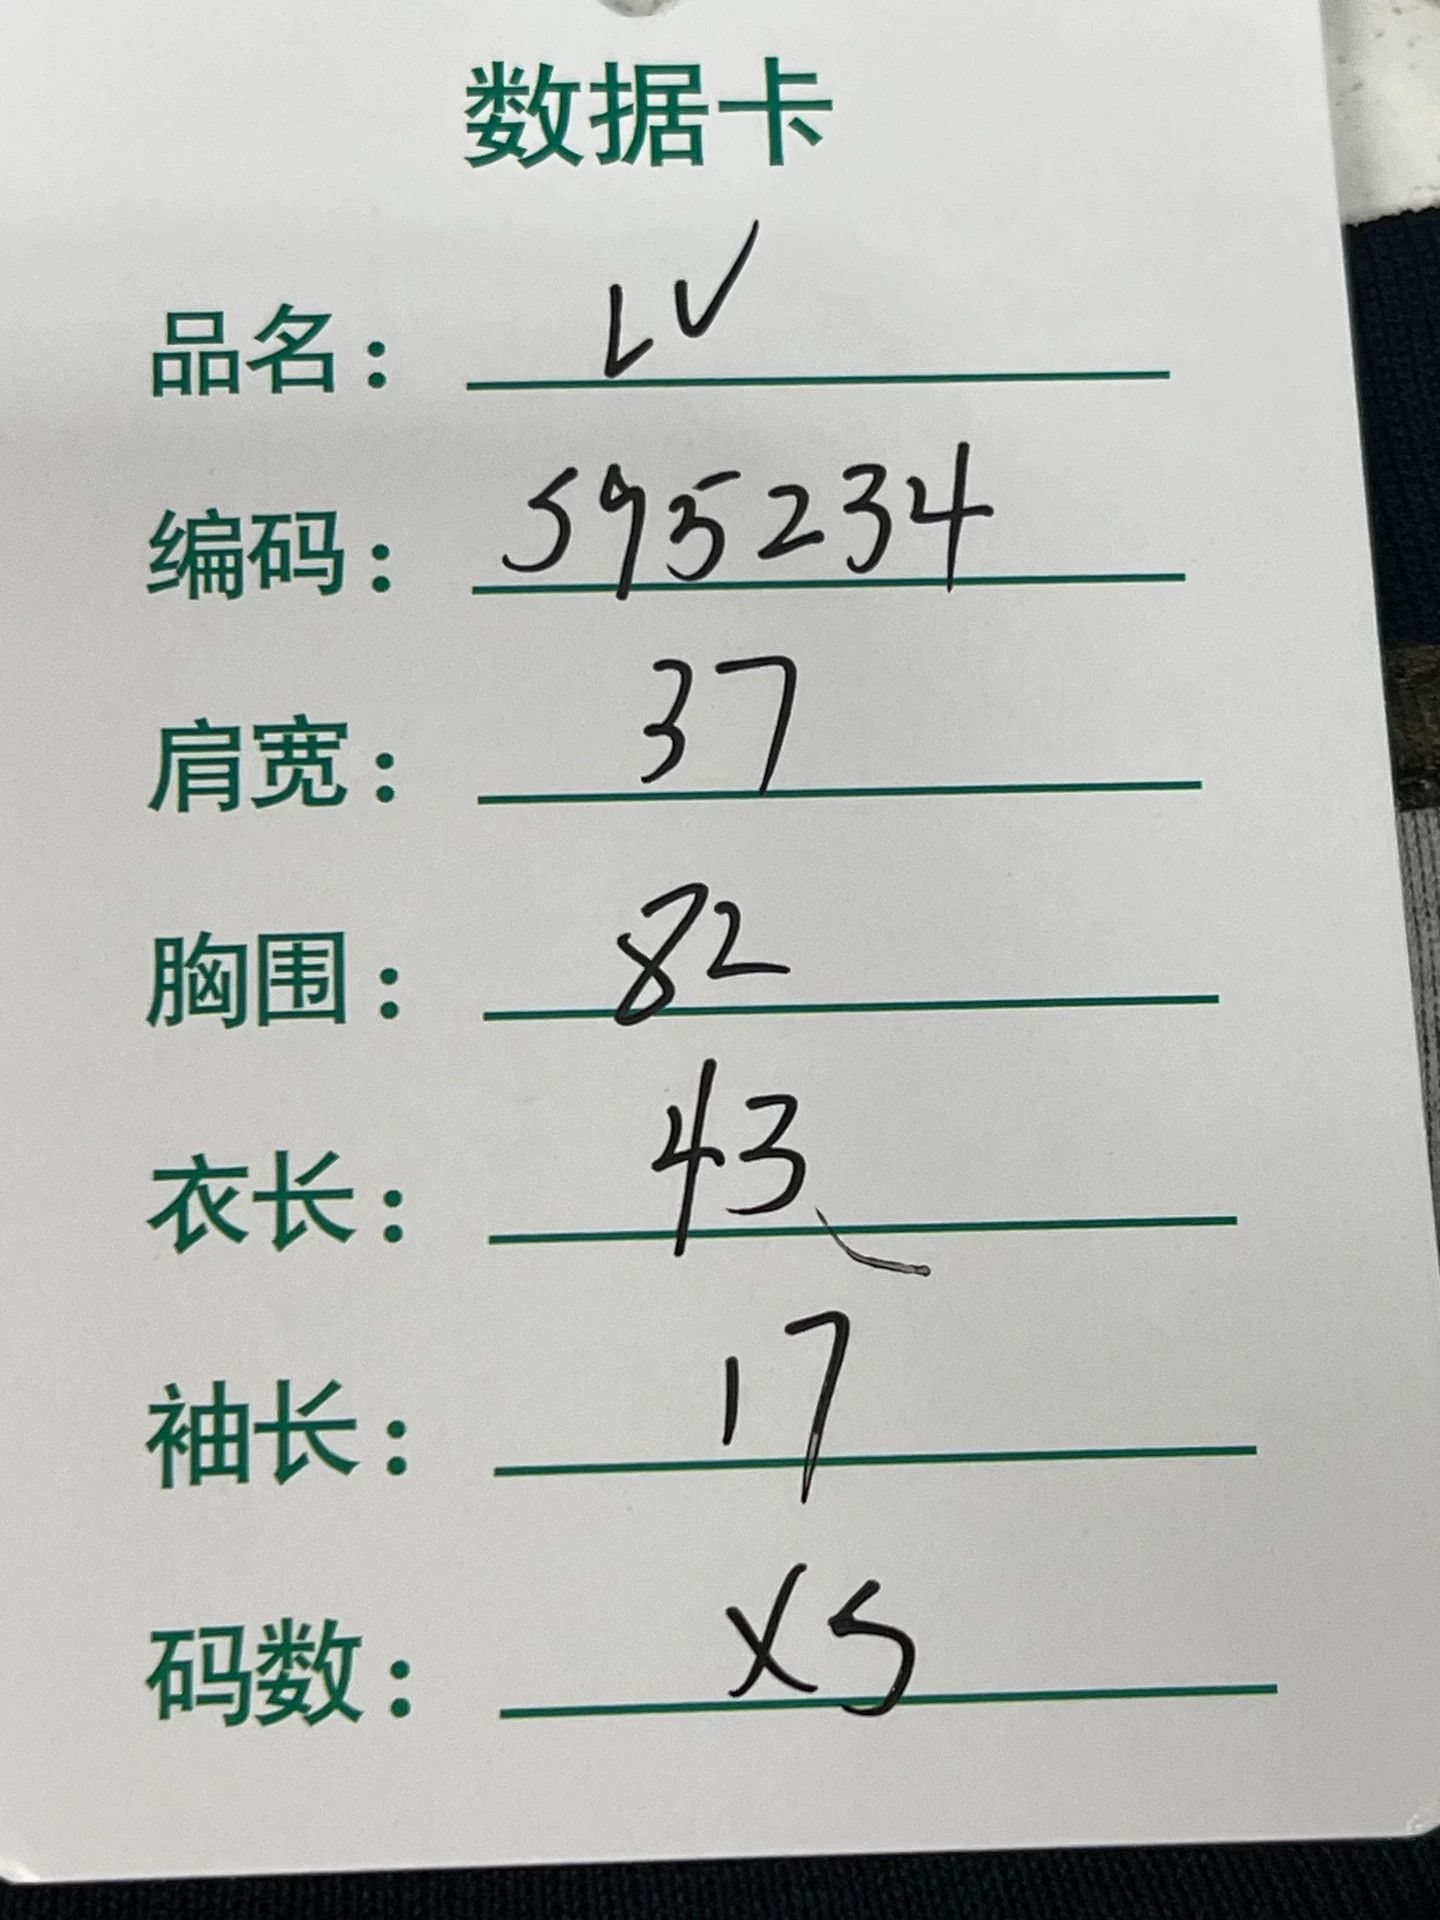 数据卡
品名: LV
编码: 595234
肩宽: 37
胸围: 82
衣长: 43
袖长: 17
码数: XS